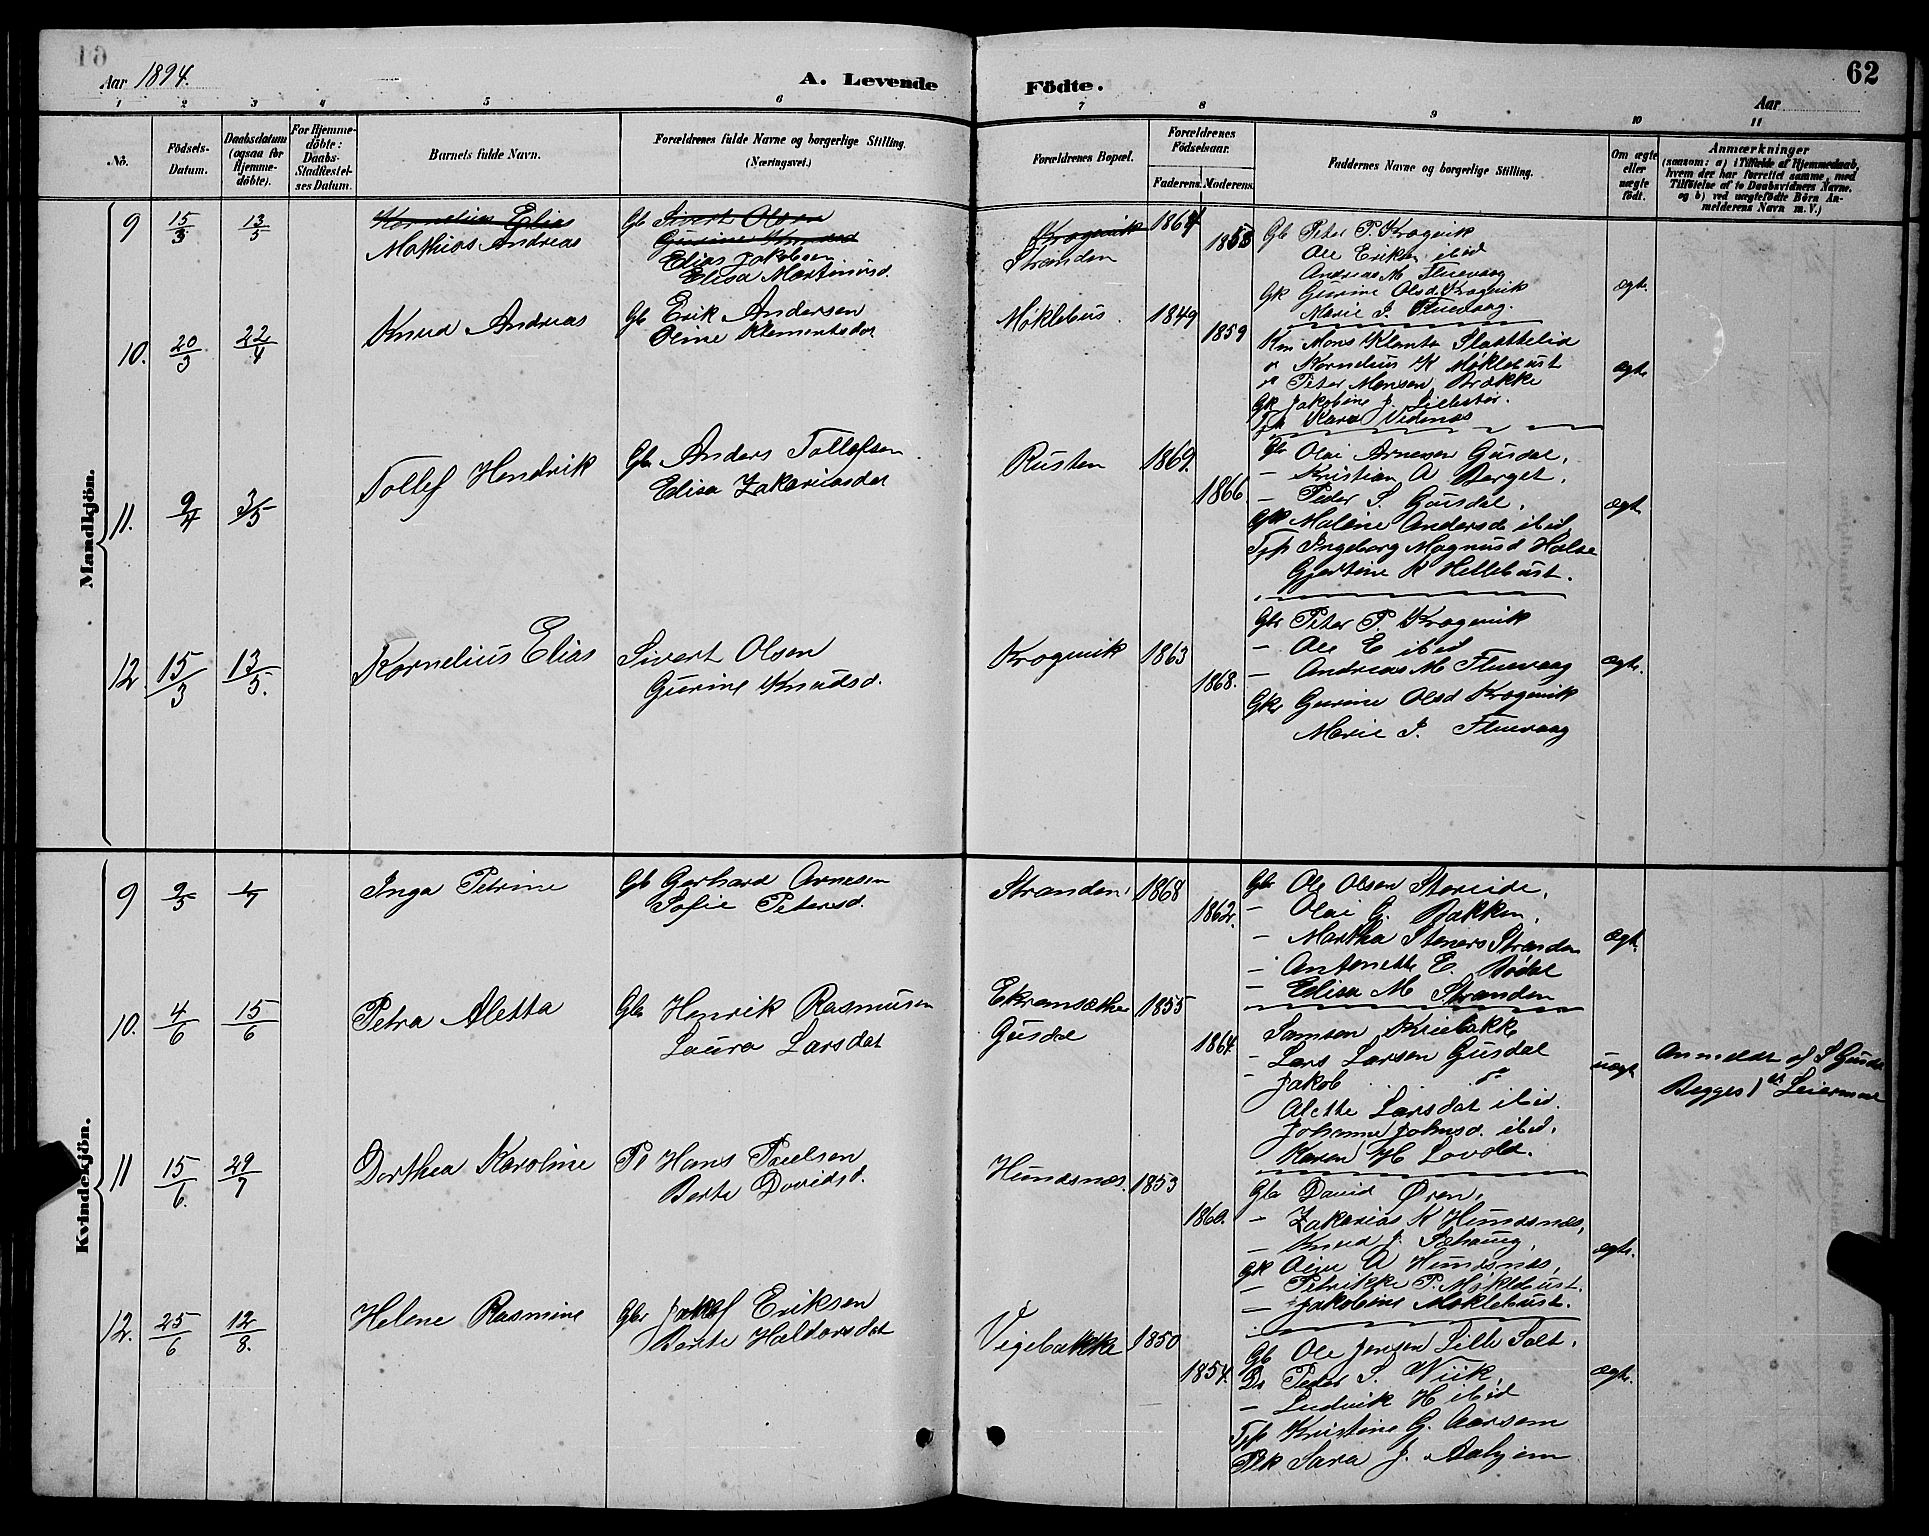 16
Aar 1894.
A. Levende Födte.
62
Aar
1 2 3 4 5 6 7 8 9 10 11
No.
Födsels-Datum.
Daabsdatum (ogsaa for Hjemme-döbte).
For Hjemme-döbte: Daabs-Stadfæstel-ses Datum.
Barnets fulde Navn.
Forældrenes fulde Navne og borgerlige Stilling. (Næringsvei.)
Forældrenes Bopæl.
Forældrenes Födselsaar.
Faderens. Moderens.
Faddernes Navne og borgerlige Stilling.
Om ægte eller uægte födt.
Anmærkninger
(saasom: a) i Tilfælde af Hjemmedaab, hvem der har forrettet samme, med Tilföielse af to Daabsvidners Navne. og b) ved uægtefödte Börn An-melderens Navn m. V.)
Mandkjön.
9 15/3 13/5
Kornelius Elias
Mathias Andreas
Gb Sivert Olsen
Gurine Knudsd
Elias Jakobsen
Elisa Martinusd.
Krogevik
Stranden
1864
1858
Gb Peter P. Krogvik
Ole Eriksen ibid
Andreas M Fluevaag
Gk Gurine Olsd. Krogvik
Marie J. Fluevaag.
ægt.
10. 20/3 22/4
Knud Andreas
Gb Erik Andersen
Oline Klementsdat
Møklebus.
1849
1859
Mons Klemts Slaattelid
Kornelius K Møklebust
Peter Monsen Brække
Gk Jakobine J. Lillestøl.
Kara Vednæs
ægt.
11. 9/4 3/5
Tollef Hendrik
Gbr Anders Tollefsen
Elisa Zakariasdat
Rusten
1869.
1866.
Gbr Olai Arnesen Gusdal.
- Kristian A Berget.
- Peder S. Gausdal.
Gk Malene Andersd ibid
Tjp Ingeborg Magnusd Halse
Gjertine K Hellebust.
ægt.
12 15/3 13/5.
Kornelius Elias
Sivert Olsen
Gurine Knudsd.
Krogevik
1863
1868.
Gbr Peter P. Krogevik
- Ole E ibid
- Andreas M. Fluevaag
Gkr Gurine Olsd Krogevik
Marie J. Fluevaag
ægt.
Kvindekjön.
9 9/5
Inga Petrine
Gb Gerhard Arnesen
Sofie Petersd.
Stranden
1868
1862.
Gbr Ole Olsen Storeide,
- Olai G. Bakken,
- Martha Steners Stranden
- Antonette E. Bødal
- Elisa M Stranden
ægt.
10. 4/6 15/6
Petra Aletta
Gbr Henrik Rasmusen
Laura Larsdat
Ekremsæther
Gusdal
1855
1864.
Samson
- Lars Larsen Gusdal
- Jakob do
Alette Larsdat ibid.
Johanne Johnsd. ibid.
Karen H. Lovold.
uægt
Anmeldt af S Gusdal
Begges 1ste Leiermaal
11 15/6. 29/7
Dorthea Karoline
Hans Paulsen
Berte Davidsd.
Hundsnæs.
1853
1860.
Gbr David Øren,
- Zakarias K Hundsnæs,
- Knud J. Sæhaug,
Gk A Hundsnæs,
- Petrikke P. Møklebust.
- Jakobine Møklebust.
ægte.
12. 25/6 12/8.
Helene Rasmine
Gbr Jakob Eriksen
Berte Haldorsdat
Vigebakke
1850
1854.
Gb Ole Jensen Lille
Peder S. Wiik,
- Ludvik H ibid
Tjp Kristine G. Aarsem
Pk Sara J. Aahjem
ægte.